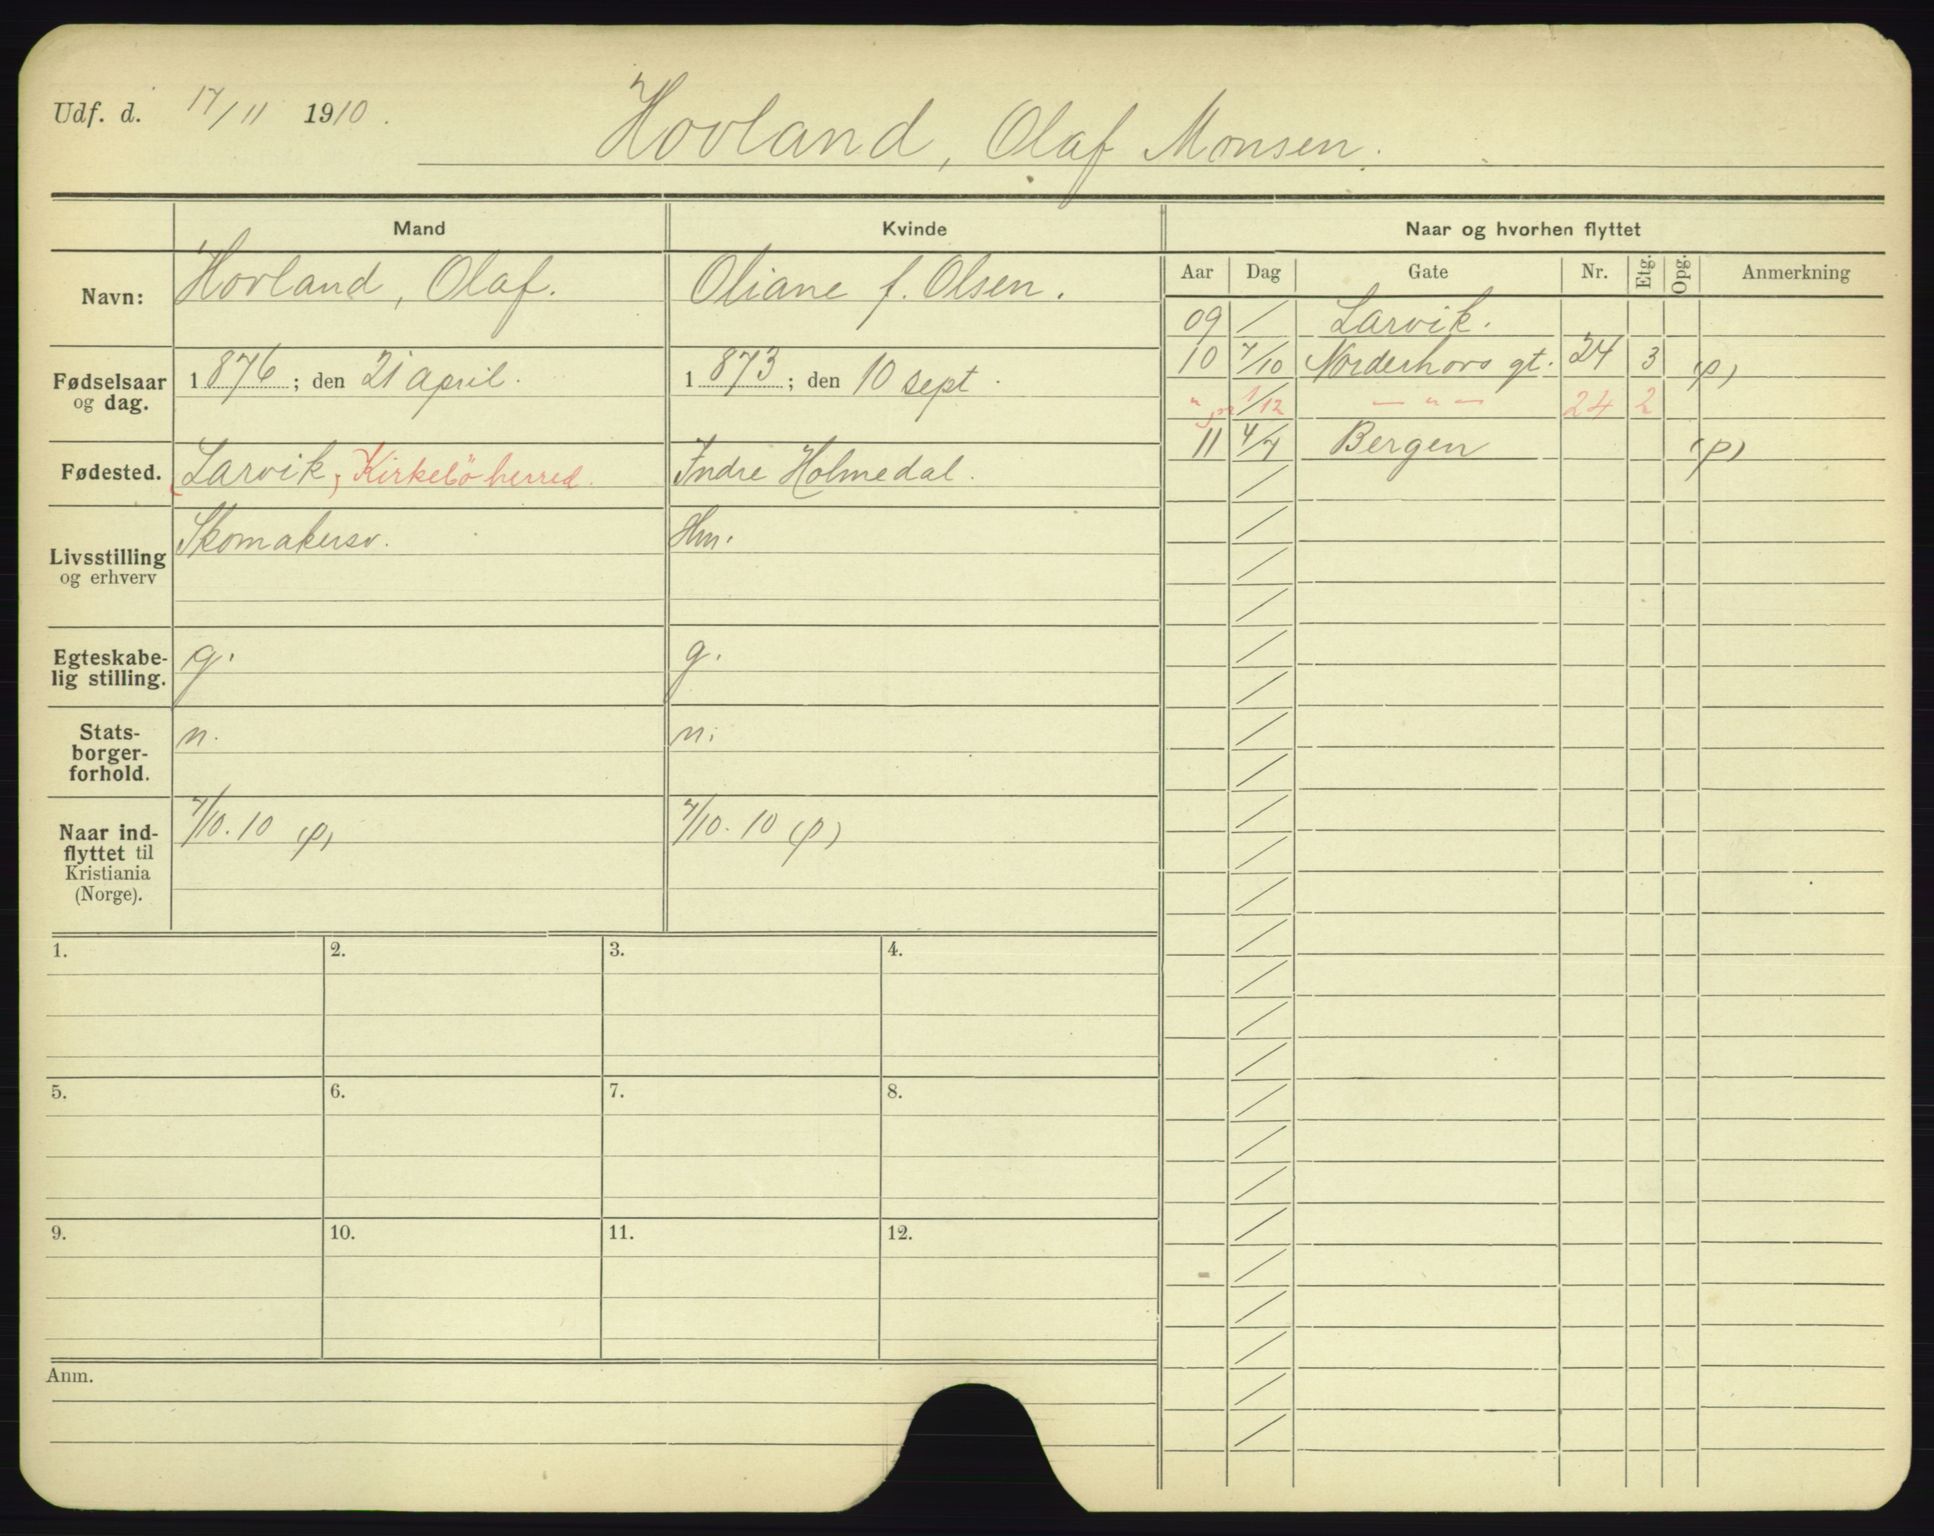 Udf. d. 17/11 1910.
Hovland, Olaf Monsen.
Mand Kvinde Naar og hvorhen flyttet
Aar Dag Gate Nr. Etg. Opg. Anmerkning
Navn: Hovland, Olaf. Oliane f. Olsen.
Fødselsaar og dag. 1876; den 21 april. 1873; den 10 sept.
Fødested. (Larvik) Kirkebö herred. Indre Holmedal.
Livsstilling og erhverv Skomakersv. Hm.
Egteskabe-
lig stilling. g. g.
Stats-
borger-
forhold. n. n.
Naar ind-
flyttet til
Kristiania
(Norge). 7/10. 10 (p) 7/10. 10 (p)
09 / Larvik.
10 7/10 Norderhovs gt. 24 3 (p)
" 1/12 — " — 24 2
11 4/7 Bergen (p)
1. 2. 3. 4.
5. 6. 7. 8.
9. 10. 11. 12.
Anm.